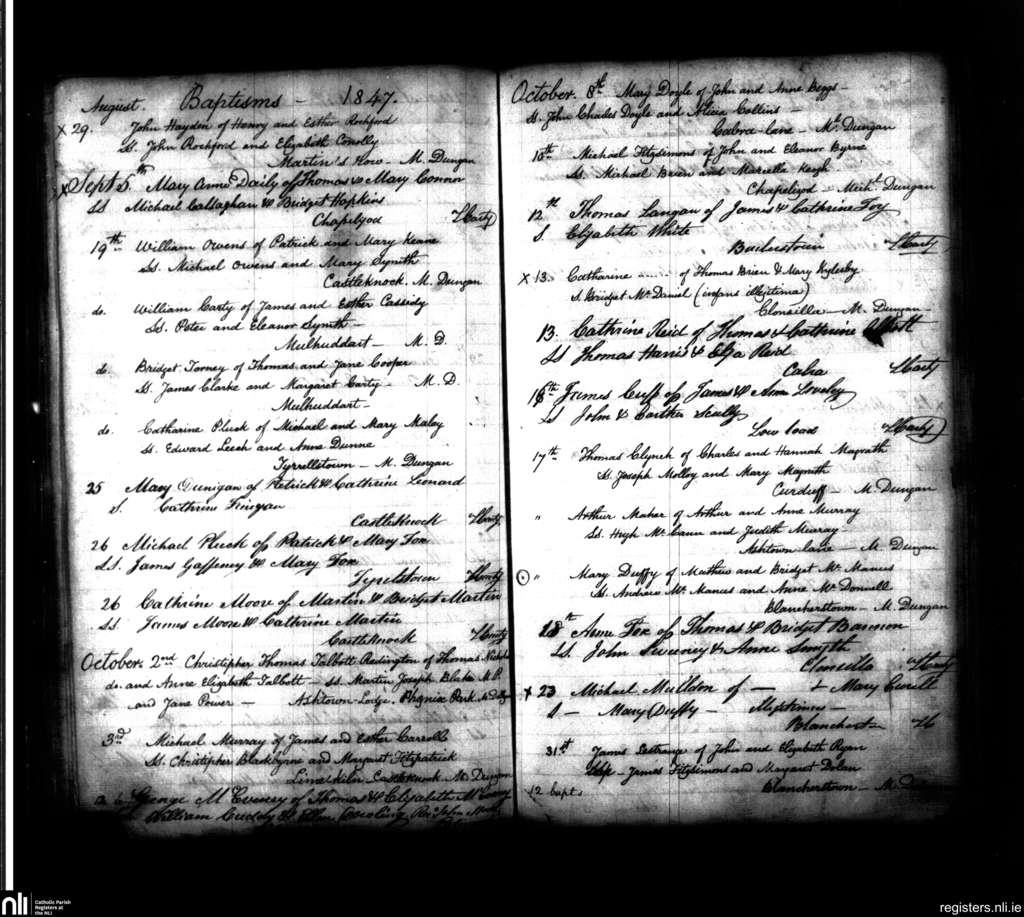 August. Baptisms - 1847.
x 29. John Hayden of Henry and Esther Rochford
Ss. John Rochford and Elizabeth Conolly
Martin's Row - M. Dungan
x Sept 5th Mary Anne Daily of Thomas & Mary Connor
SS Michael Callaghan & Bridget Hopkins
Chapelizod
19th William Owens of Patrick and Mary Keane
Ss. Michael Owens and Mary Smyth
Castleknock. M. Dungan
do. William Carty of James and Esther Cassidy
Ss. Peter and Eleanor Smyth -
Mulhuddart - M. D.
do Bridget Torney of Thomas and Jane Cooper
Ss. James Clarke and Margaret Carty - M. D.
Mulhuddart -
do. Catharine Pluck of Michael and Mary Maley
Ss. Edward Leech and Anne Dunne
Tyrrellstown - M. Dungan
25 Mary Dunigan of Patrick & Cathrine Leonard
S. Cathrine Finigan
Castleknock
26 Michael Pluck of Patrick & Mary Fox
SS. James Gaffeney & Mary Fox
Tyrelstown
26 Cathrine Moore of Martin & Bridget Martin
SS. James Moore & Cathrine Martin
Castleknock
October. 2nd Christopher Thomas Talbott Redington of Thomas Nicholas
do. and Anne Elizabeth Talbott - Ss. Martin Joseph Blake M.P.
and Jane Power - Ashtown-Lodge, Phoenix Park.
3rd Michael Murray of James and Esther Carroll
Ss. Christopher Blackbyrne and Margaret Fitzpatrick
Limekiln - Castleknock M. Dungan
George McEveney of Thomas & Elizabeth
William Cuddy & Ellen
October. 8th Mary Doyle of John and Anne Beggs -
Ss. John Charles Doyle and Alicia Collins -
Cabra lane - Ml. Dungan
10th Michael Fitzsimons of John and Eleanor Byrne
Ss. Michael Brien and Marcella Keogh
Chapelizod - Michl. Dungan
12th Thomas Langan of James & Cathrine Foy
S. Elizabeth White
x 13. Catharine of Thomas Brien & Mary
S. Bridget McDaniel (infans illegitima)
Clonsilla - M. Dungan -
13. Cathrine Reid of Thomas & Cathrine
SS Thomas Harris & Eliza Reid
Cabra
16th James Cuff of James & Anne Loveley
Ss John & Scully
Low road
17th Thomas Clynch of Charles and Hannah Magrath
Ss. Joseph Molloy and Mary
Curduff - M. Dungan
" Arthur Maher of Arthur and Anne Murray
Ss. Hugh McCann and Judith Murray
Ashtown lane - M. Dungan
" Mary Duffy of Matthew and Bridget McManus
Ss. Andrew McManus and Anne McDonnell
Blancherstown - M. Dungan
18th Anne Fox of Thomas & Bridget Bannon
SS. John Sweeney & Anne Smyth
Clonsilla
x 23 Michael Mulldon of - & Mary
S - Mary Duffy -
Blancherst
31st James of John and Elizabeth Ryan
James Fitzsimons and Margaret Dolan
Blancherstown - M. Dungan
12 bapts
nli Catholic Parish
Registers at
the NLI
registers.nli.ie